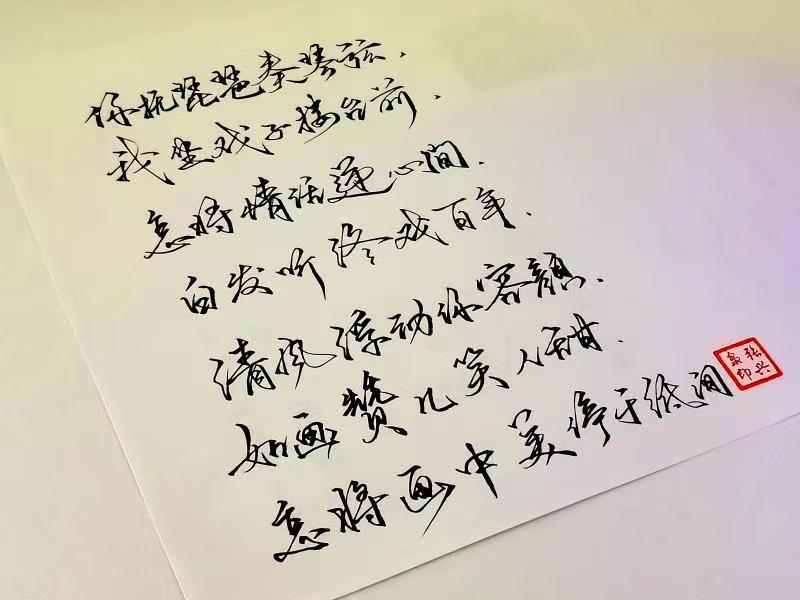 你抚琵琶奏琴弦.
我坐戏子楼台前.
怎将情话递心间.
白发听终戏百年.
清风浮动你容颜.
如画赞几笑人语甘.
怎将画中美停于纸间
张兴泉印